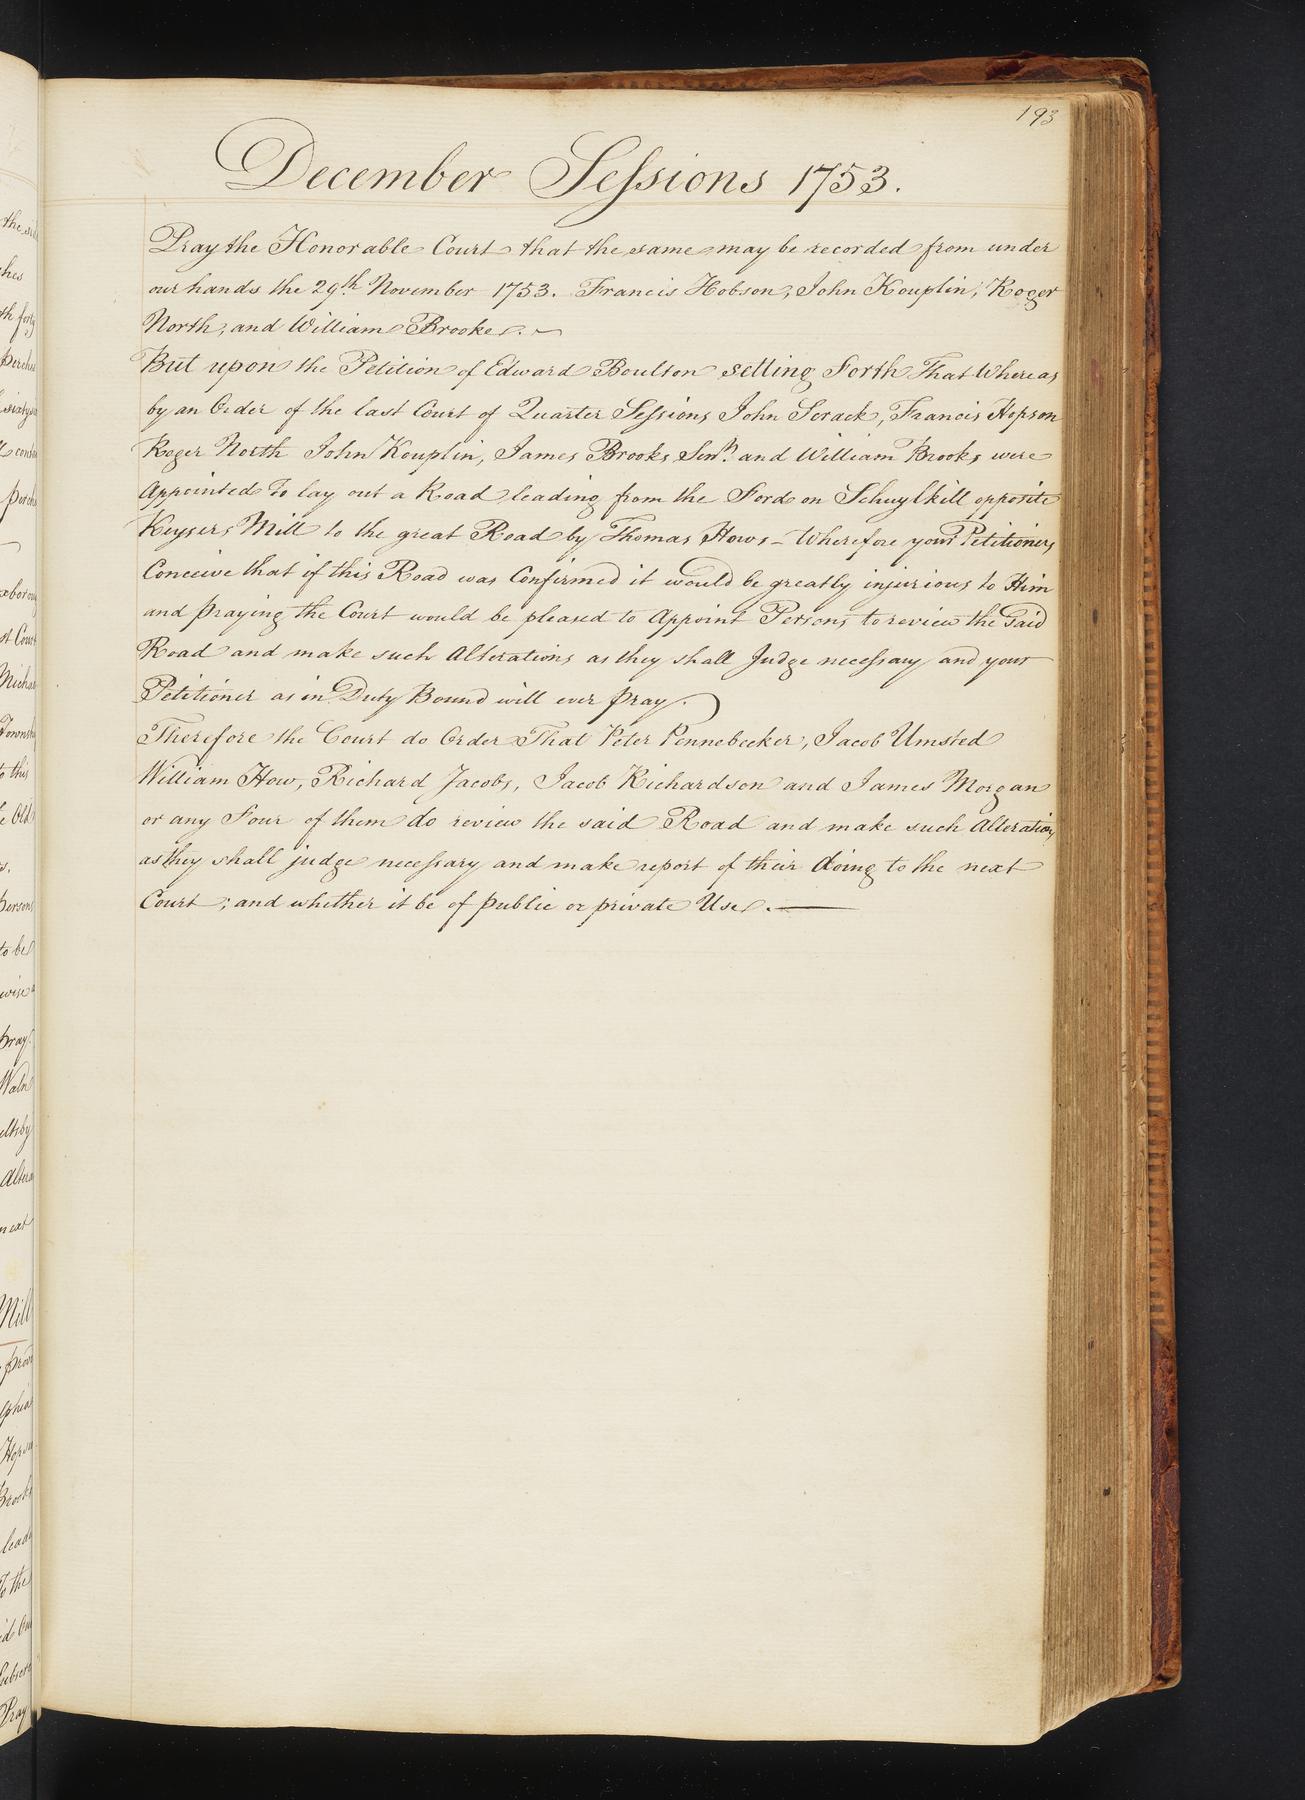 193
December Sessions 1753.
Pray the Honorable Court that the same may be recorded from under
our hands the 29th November 1753. Francis Hobson, John Kouplin, Roger
North, and William Brooke.
But upon the Petition of Edward Boulton setting Forth That Whereas
by an Order of the last Court of Quarter Sessions John Scrack, Francis Hopson
Roger North John Kouplin, James Brooks Senr. and William Brooks were
Appointed To lay out a Road leading from the Ford on Schuylkill opposite
Keysers Mill to the great Road by Thomas Hows - Wherefore your Petitioners
Conceive that if this Road was Confirmed it would be greatly injurious to Him
and praying the Court would be pleased to Appoint Persons to review the said
Road and make such Alterations as they shall Judge necessary and your
Petitioner as in Duty Bound will ever pray.
Therefore the Court do Order That Peter Pennebecker, Jacob Umsted
William How, Richard Jacobs, Jacob Richardson and James Morgan
or any Four of them do review the said Road and make such Alterations
as they shall judge necessary and make report of their doing to the next
Court; and whether it be of public or private Use.